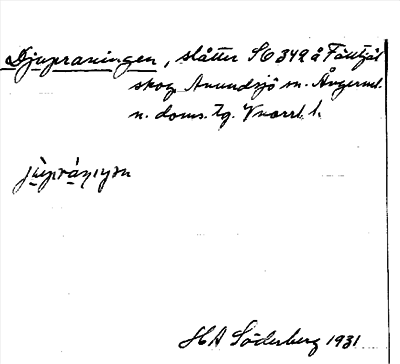 Djupraningen, slåtter SO 342 å Fälltjäl
skog Anundsjö sn. Ångerml.
n. doms. Tg. Vnorrl. l.
jùpráŋıŋɜn
HA Söderberg 1931